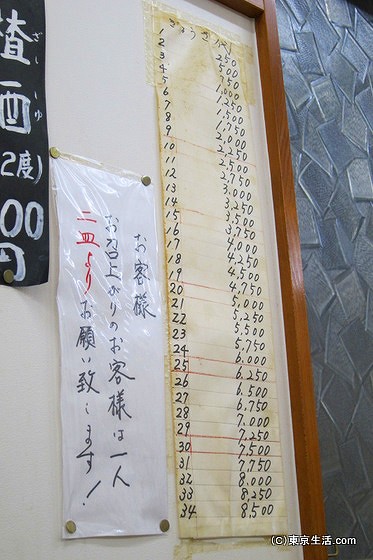 渣酒
ざしゅ
2度)
00円
お客様
お召上がりのお客様は一人
二皿よりお願い致します！
ぎょうざ
1 250
2 500
3 750
4 1,000
5 1,250
6 1,500
7 1,750
8 2,000
9 2,250
10 2,500
11 2,750
12 3,000
13 3,250
14 3,500
15 3,750
16 4,000
17 4,250
18 4,500
19 4,750
20 5,000
21 5,250
22 5,500
23 5,750
24 6,000
25 6,250
26 6,500
27 6,750
28 7,000
29 7,250
30 7,500
31 7,750
32 8,000
33 8,250
34 8,500
(C)東京生活.com